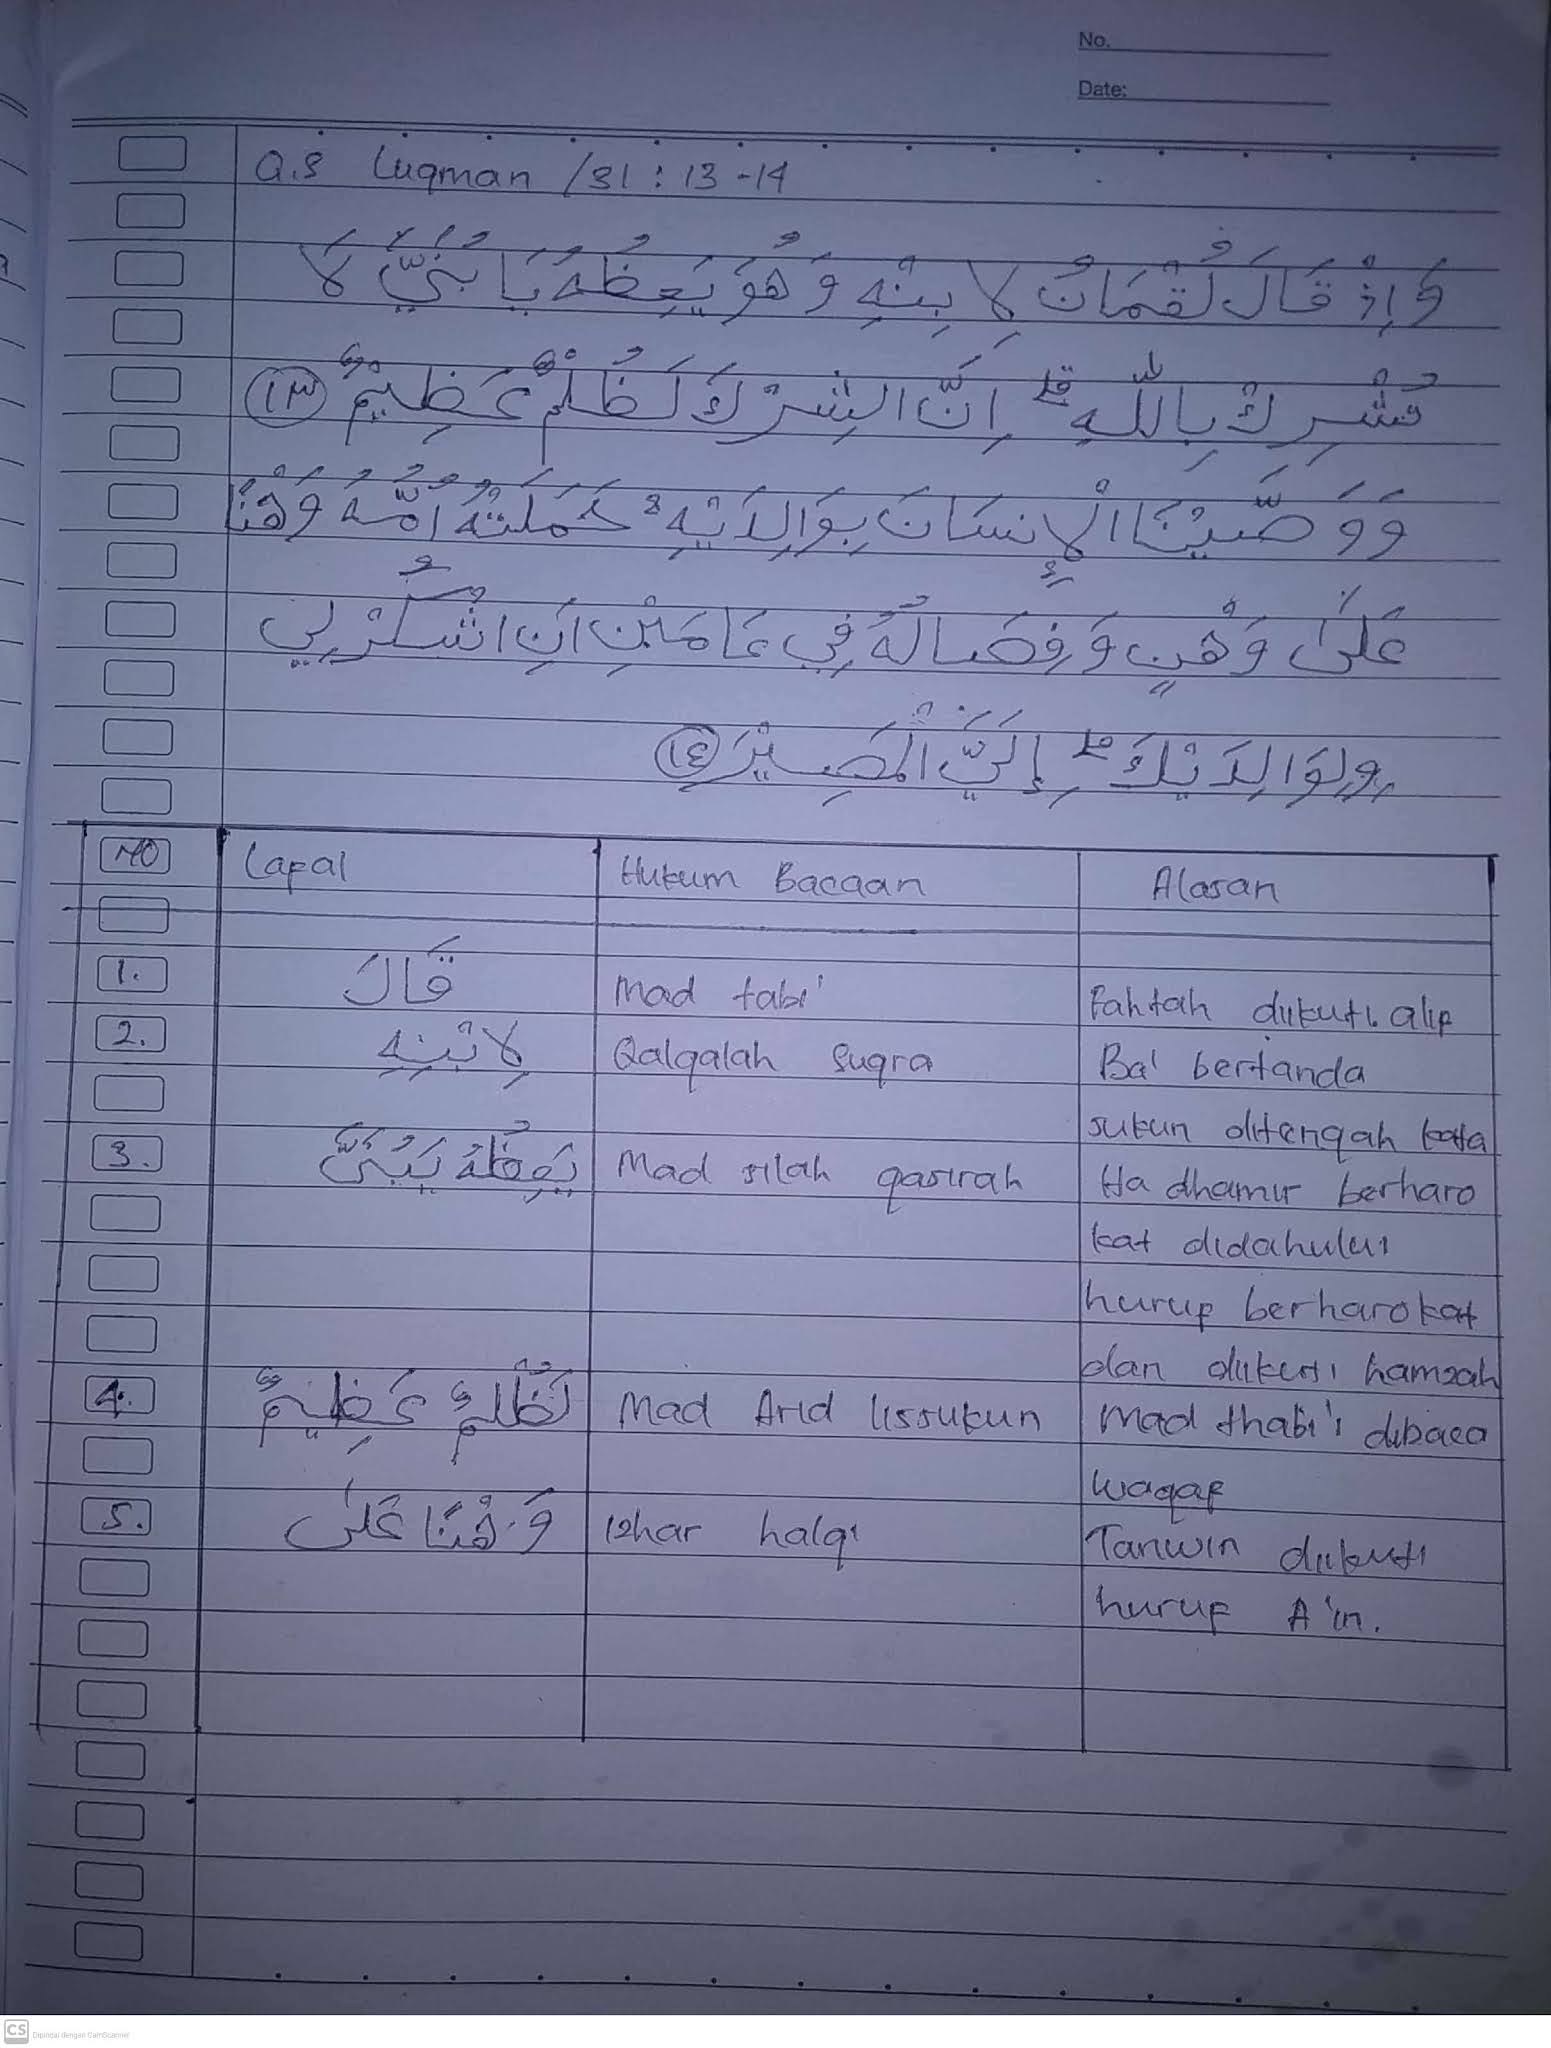 No.
Date:
Q.S Luqman /31 : 13 -14
وَإِذْ قَالَ لُقْمَانُ لِابْنِهِ وَهُوَ يَعِظُهُ يَا بُنَيَّ لَا
تُشْرِكْ بِاللّٰهِ ۗ اِنَّ الشِّرْكَ لَظُلْمٌ عَظِيْمٌ ١٣
وَوَصَّيْنَا الْإِنسَانَ بِوَالِدَيْهِ ۚ حَمَلَتْهُ اُمُّهُ وَهْنًا
عَلٰى وَهْنٍ وَفِصَالُهُ فِي عَامَيْنِ اَنِ اشْكُرْ لِي
وَلِوَالِدَيْكَ ۗ إِلَيَّ الْمَصِيْرُ ١٤
NO Lapal Hukum Bacaan Alasan
1. قَالَ Mad tabi' Fahtah diikuti alip
2. لِابْنِهِ Qalqalah suqra Ba' bertanda
sukun ditengah kata
3. يَعِظُهُ يَبُنَيَّ Mad silah qasirah Ha dhamir berharo
kat didahului
hurup berharokat
dan diikuti hamzah
4. لَظُلْمٌ عَظِيْمٌ Mad Arid lissukun Mad thabi'i dibaca
waqap
5. وَهْنًا عَلٰى Izhar halqi Tanwin diikuti
hurup A'in.
CS Dipindai dengan CamScanner